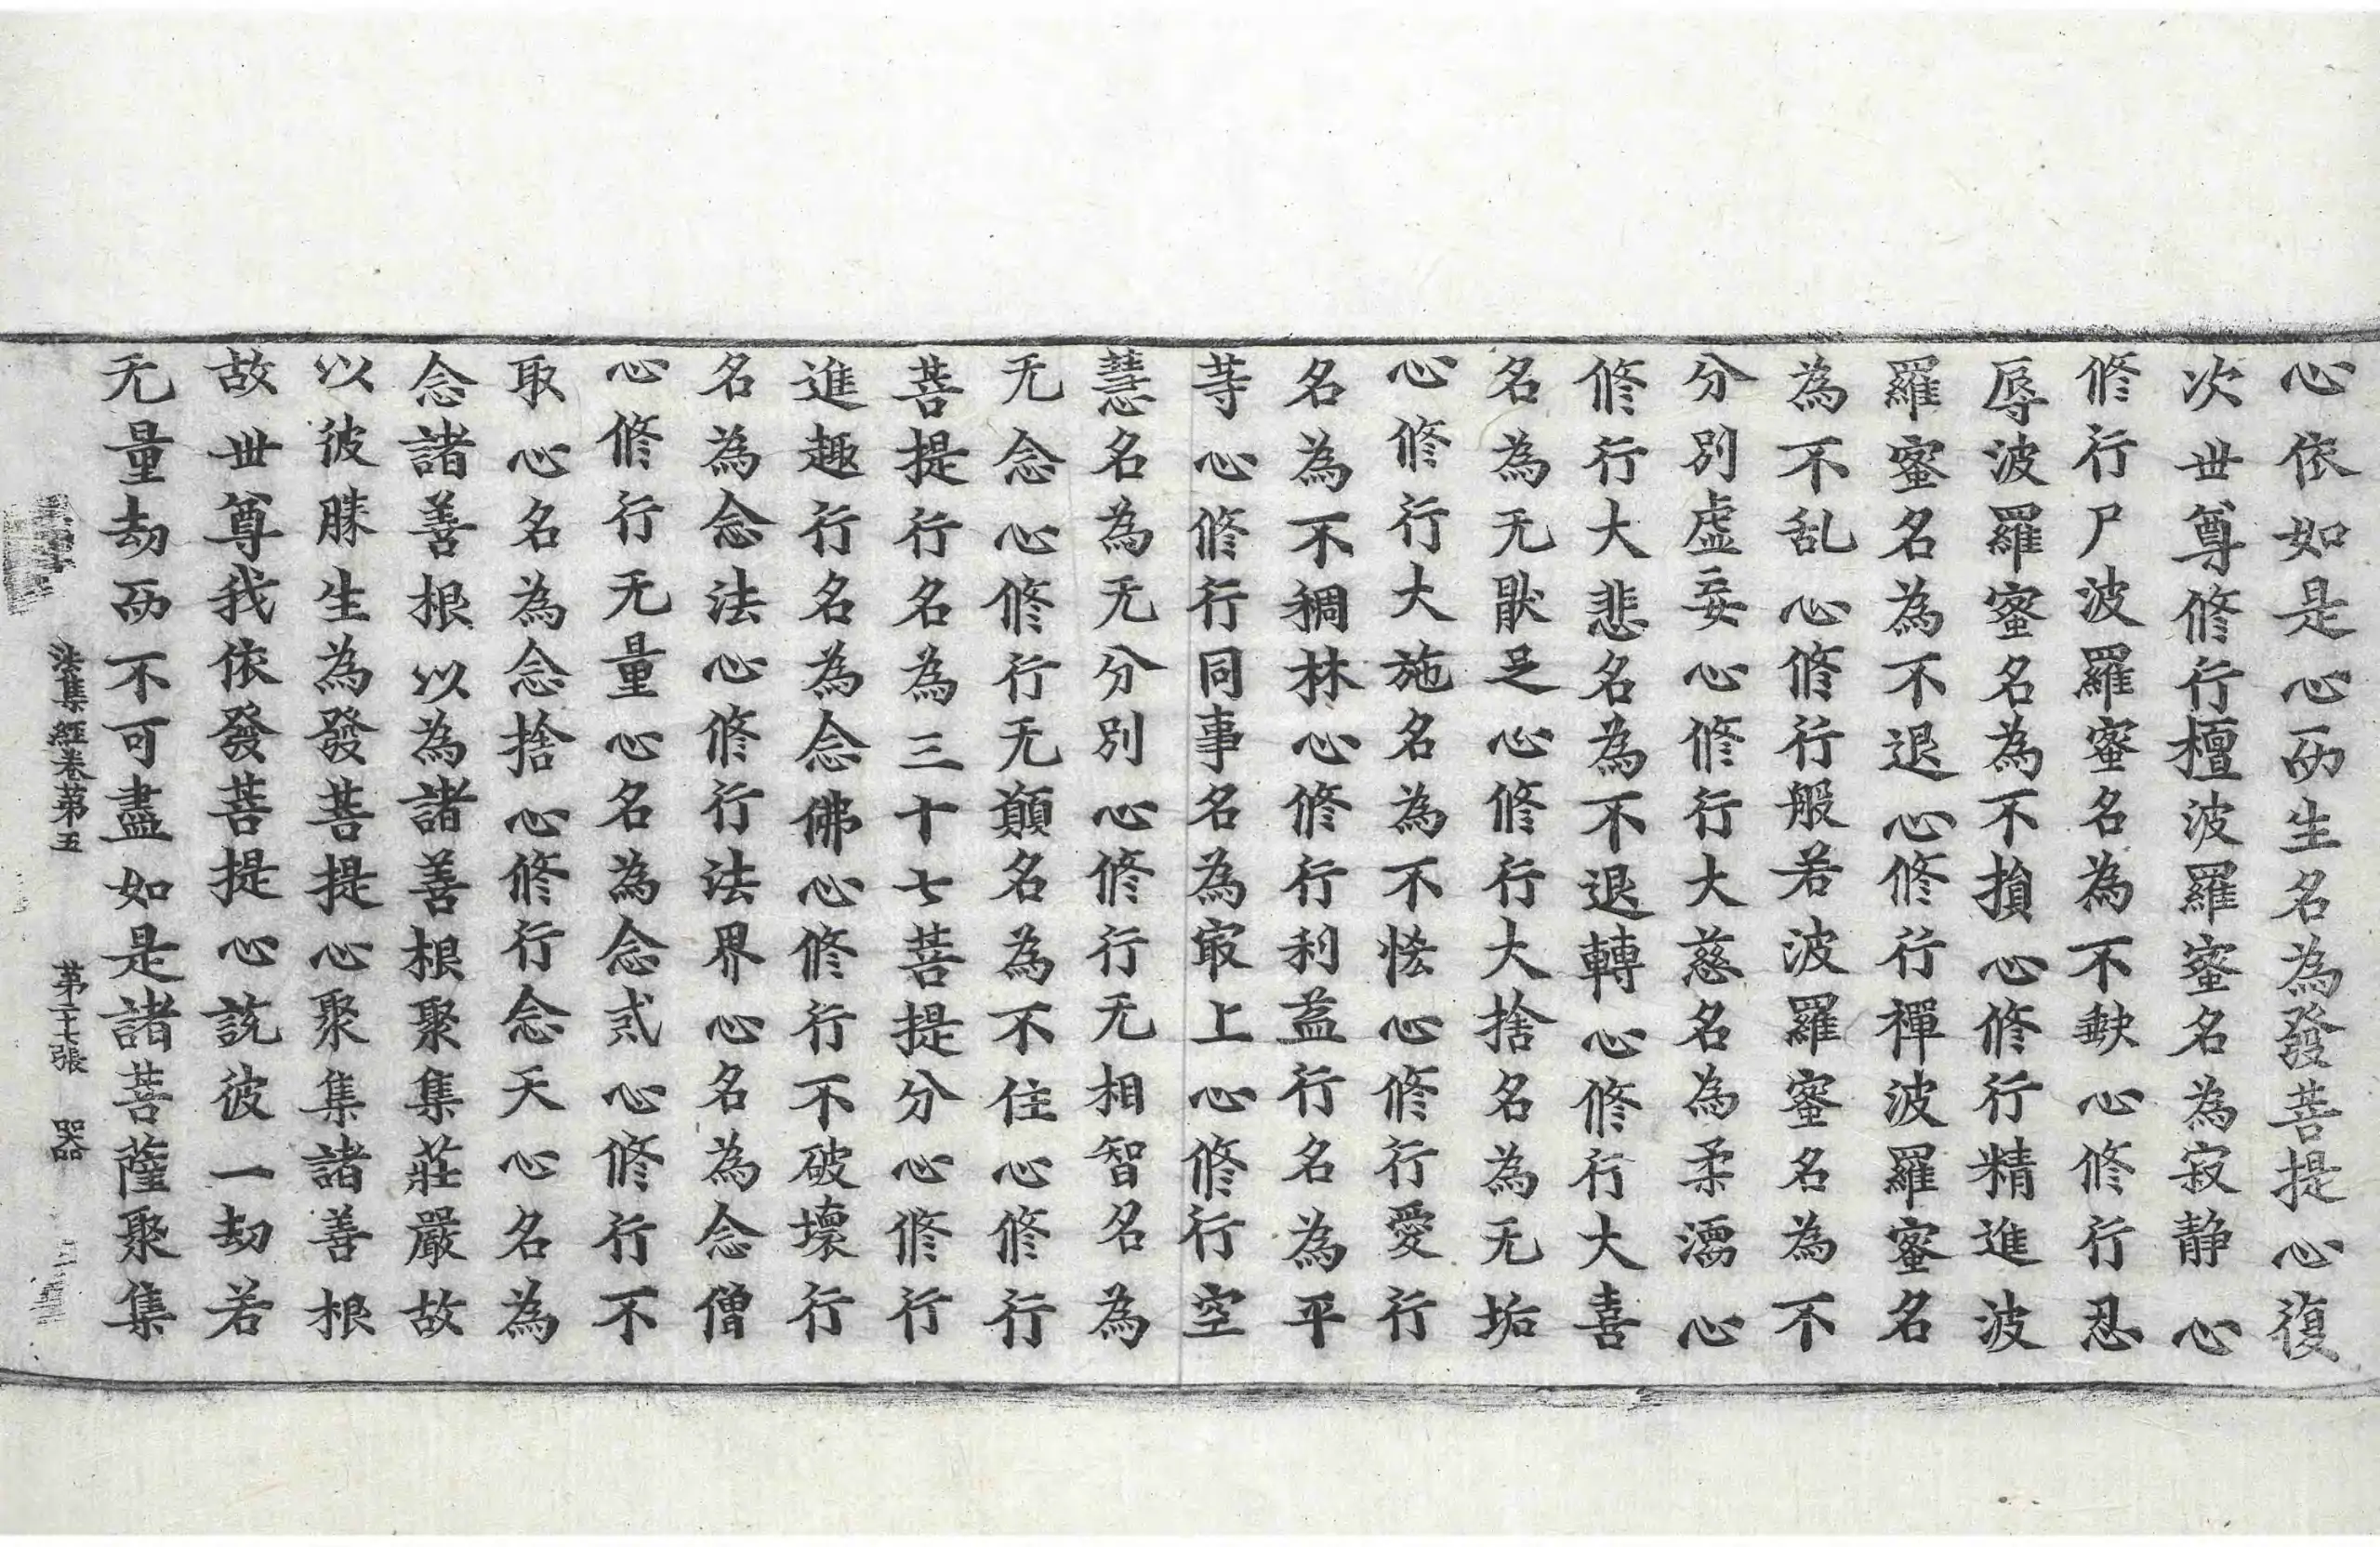 心依如是心而生名為發菩提心復
次世尊修行檀波羅蜜名為寂静心
修行尸波羅蜜名為不缺心修行忍
辱波羅蜜名為不損心修行精進波
羅蜜名為不退心修行禪波羅蜜名
為不乱心修行般若波羅蜜名為不
分別虛妄心修行大慈名為柔濡心
修行大悲名為不退轉心修行大喜
名為无猒足心修行大捨名為无垢
心修行大施名為不恡心修行愛行
名為不稠林心修行利益行名為平
等心修行同事名為㝡上心修行空
慧名為无分別心修行无相智名為
无念心修行无顛名為不住心修行
菩提行名為三十七菩提分心修行
進趣行名為念佛心修行不破壞行
名為念法心修行法界心名為念僧
心修行无量心名為念貳心修行不
取心名為念捨心修行念天心名為
念諸善根以為諸善根聚集莊嚴故
以彼勝生為發菩提心聚集諸善根
故世尊我依發菩提心說彼一劫若
无量劫而不可盡如是諸菩薩聚集
法集經卷第五 第二十七張 器